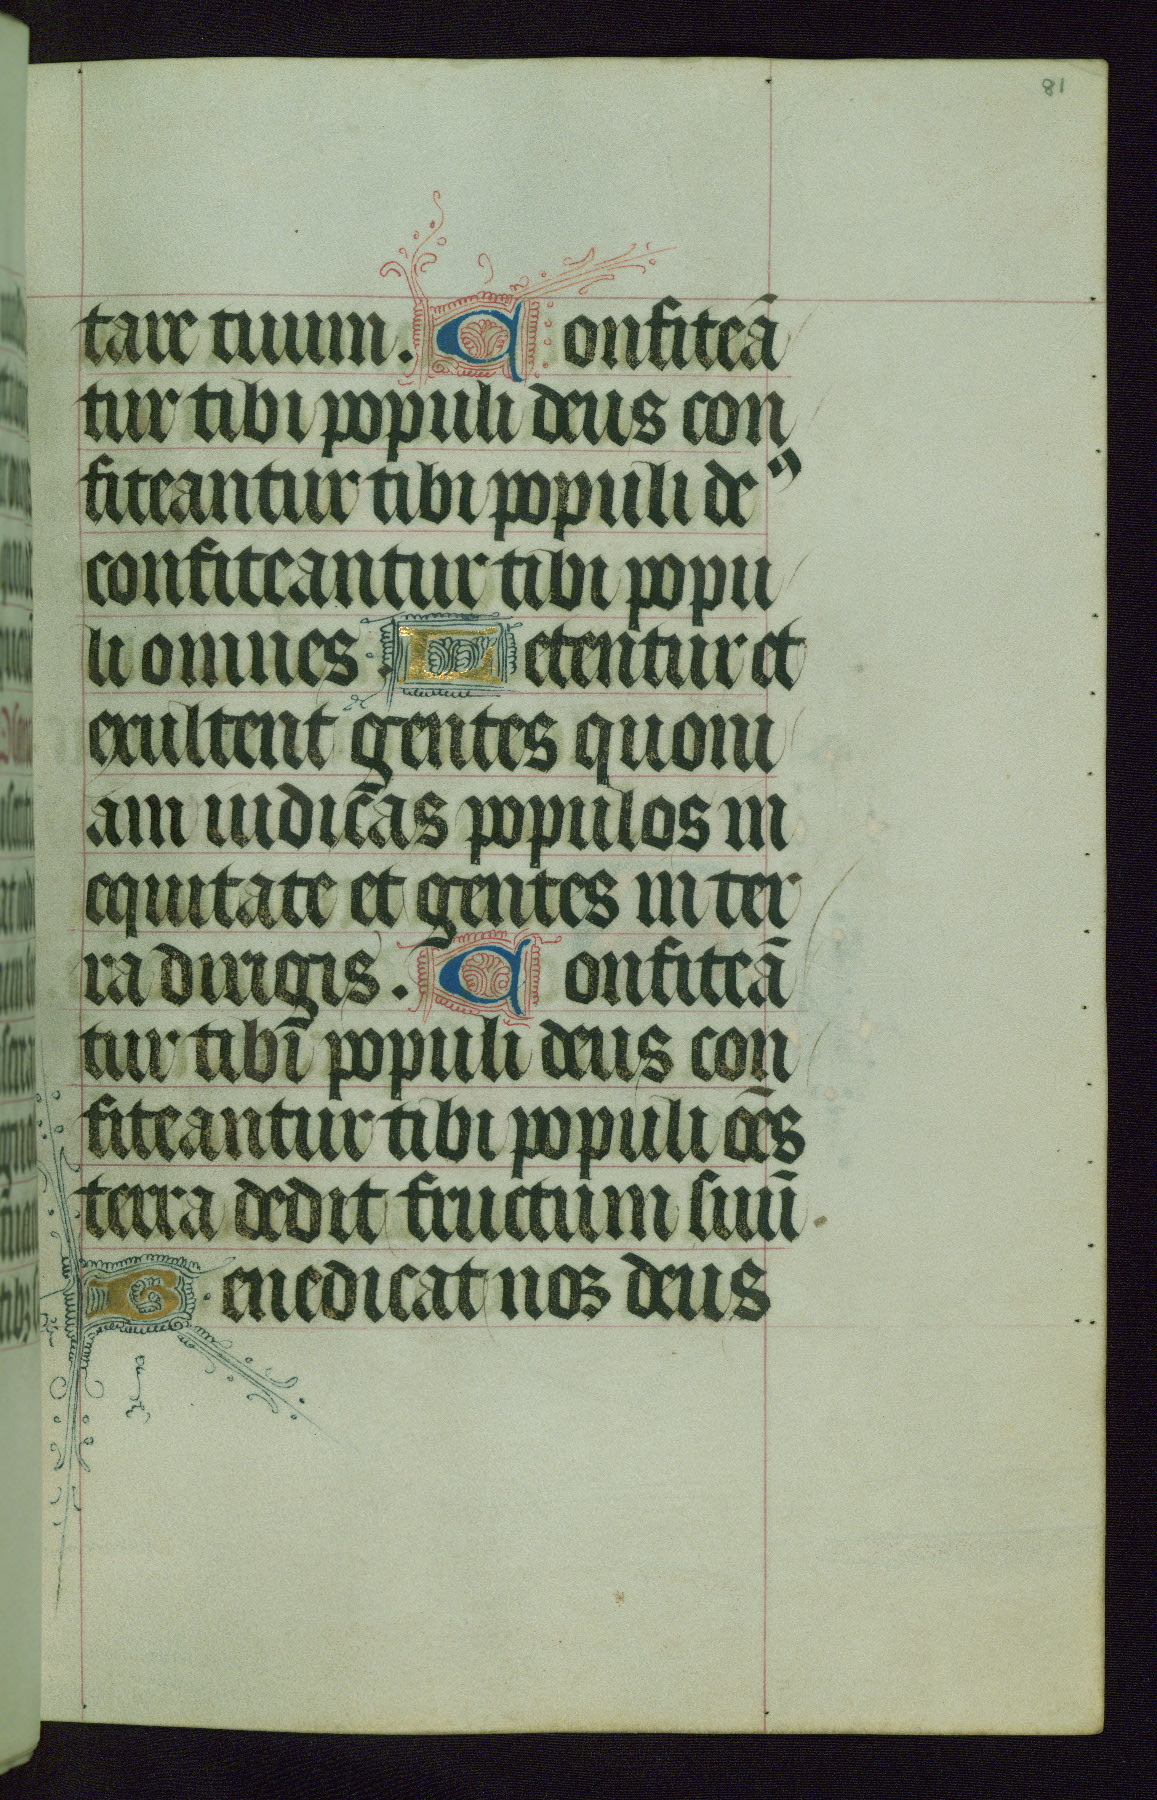 81
tare tuum. Confiteā
tur tibi populi deus con
fiteantur tibi populi deꝰ
confiteantur tibi popu
li omnes. Letentur et
exultent gentes quoni
am iudicas populos in
equitate et gentes in ter
ra dirigis. Confiteā
tur tibi populi deus con
fiteantur tibi populi oēs
terra dedit fructum suū.
Benedicat nos deus